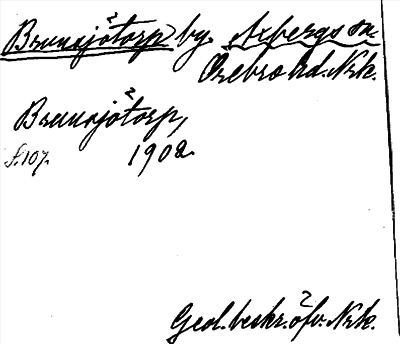 Brunsjötorp by. Axbergs sn.
Örebro hd. Nrk.
Brunsjötorp,
s. 107. 1902.
Geol. beskr. öfv. Nrk.